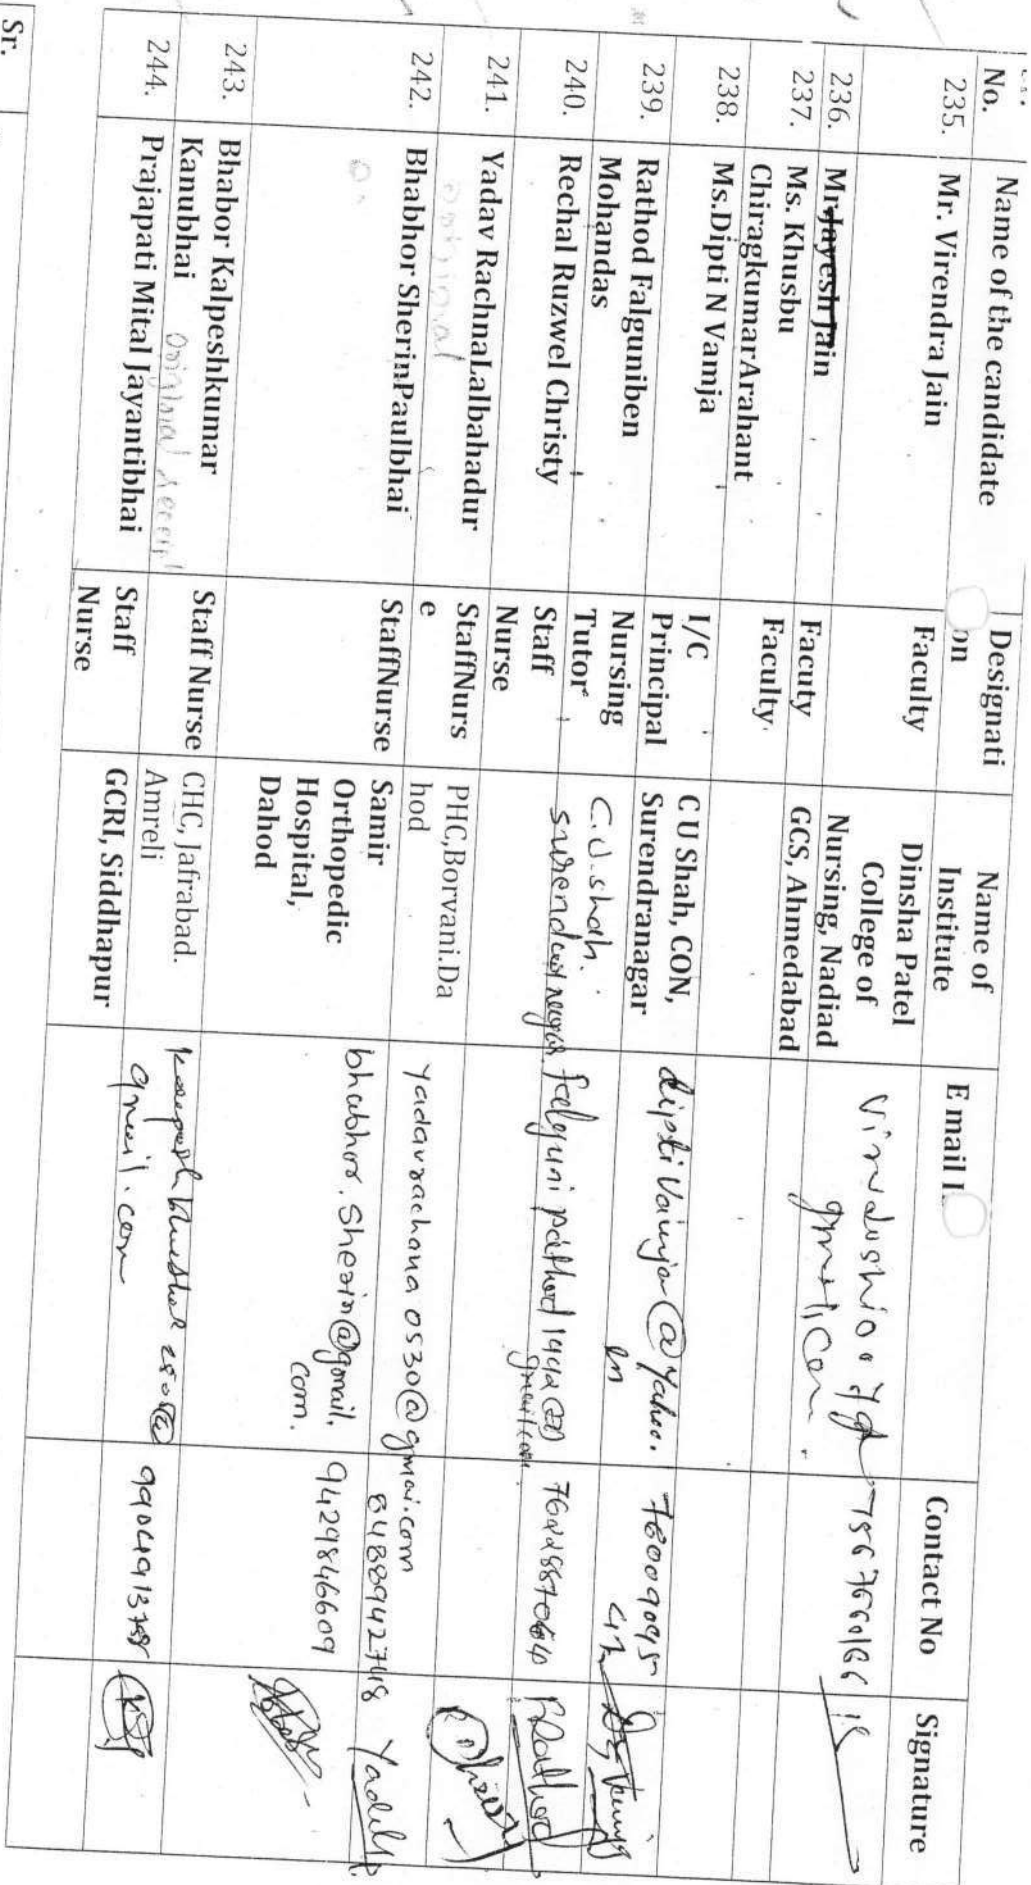 No. Name of the candidate Designati on Name of Institute E mail I Contact No Signature
235. Mr. Virendra Jain Faculty Dinsha Patel College of Nursing, Nadiad
236. Mr.Jayesh Jain Facuty GCS, Ahmedabad
237. Ms. Khusbu ChiragkumarArahant Faculty
238. Ms.Dipti N Vamja I/C Principal C U Shah, CON, Surendranagar diptivamja@yahoo. in 76009095
239. Rathod Falguniben Mohandas Nursing Tutor C.U.shah. Rathod
240. Rechal Ruzwel Christy Staff Nurse
241. Yadav RachnaLalbahadur StaffNurs e PHC,Borvani.Da hod yadavrachana0530@gmai.com 8488942748
242. Bhabhor SherinPaulbhai StaffNurse Samir Orthopedic Hospital, Dahod bhabhor.Sherin@gmail. com. 9429846609
243. Bhabor Kalpeshkumar Kanubhai Original Staff Nurse CHC, Jafrabad. Amreli gmail.com
244. Prajapati Mital Jayantibhai Staff Nurse GCRI, Siddhapur
Sr.